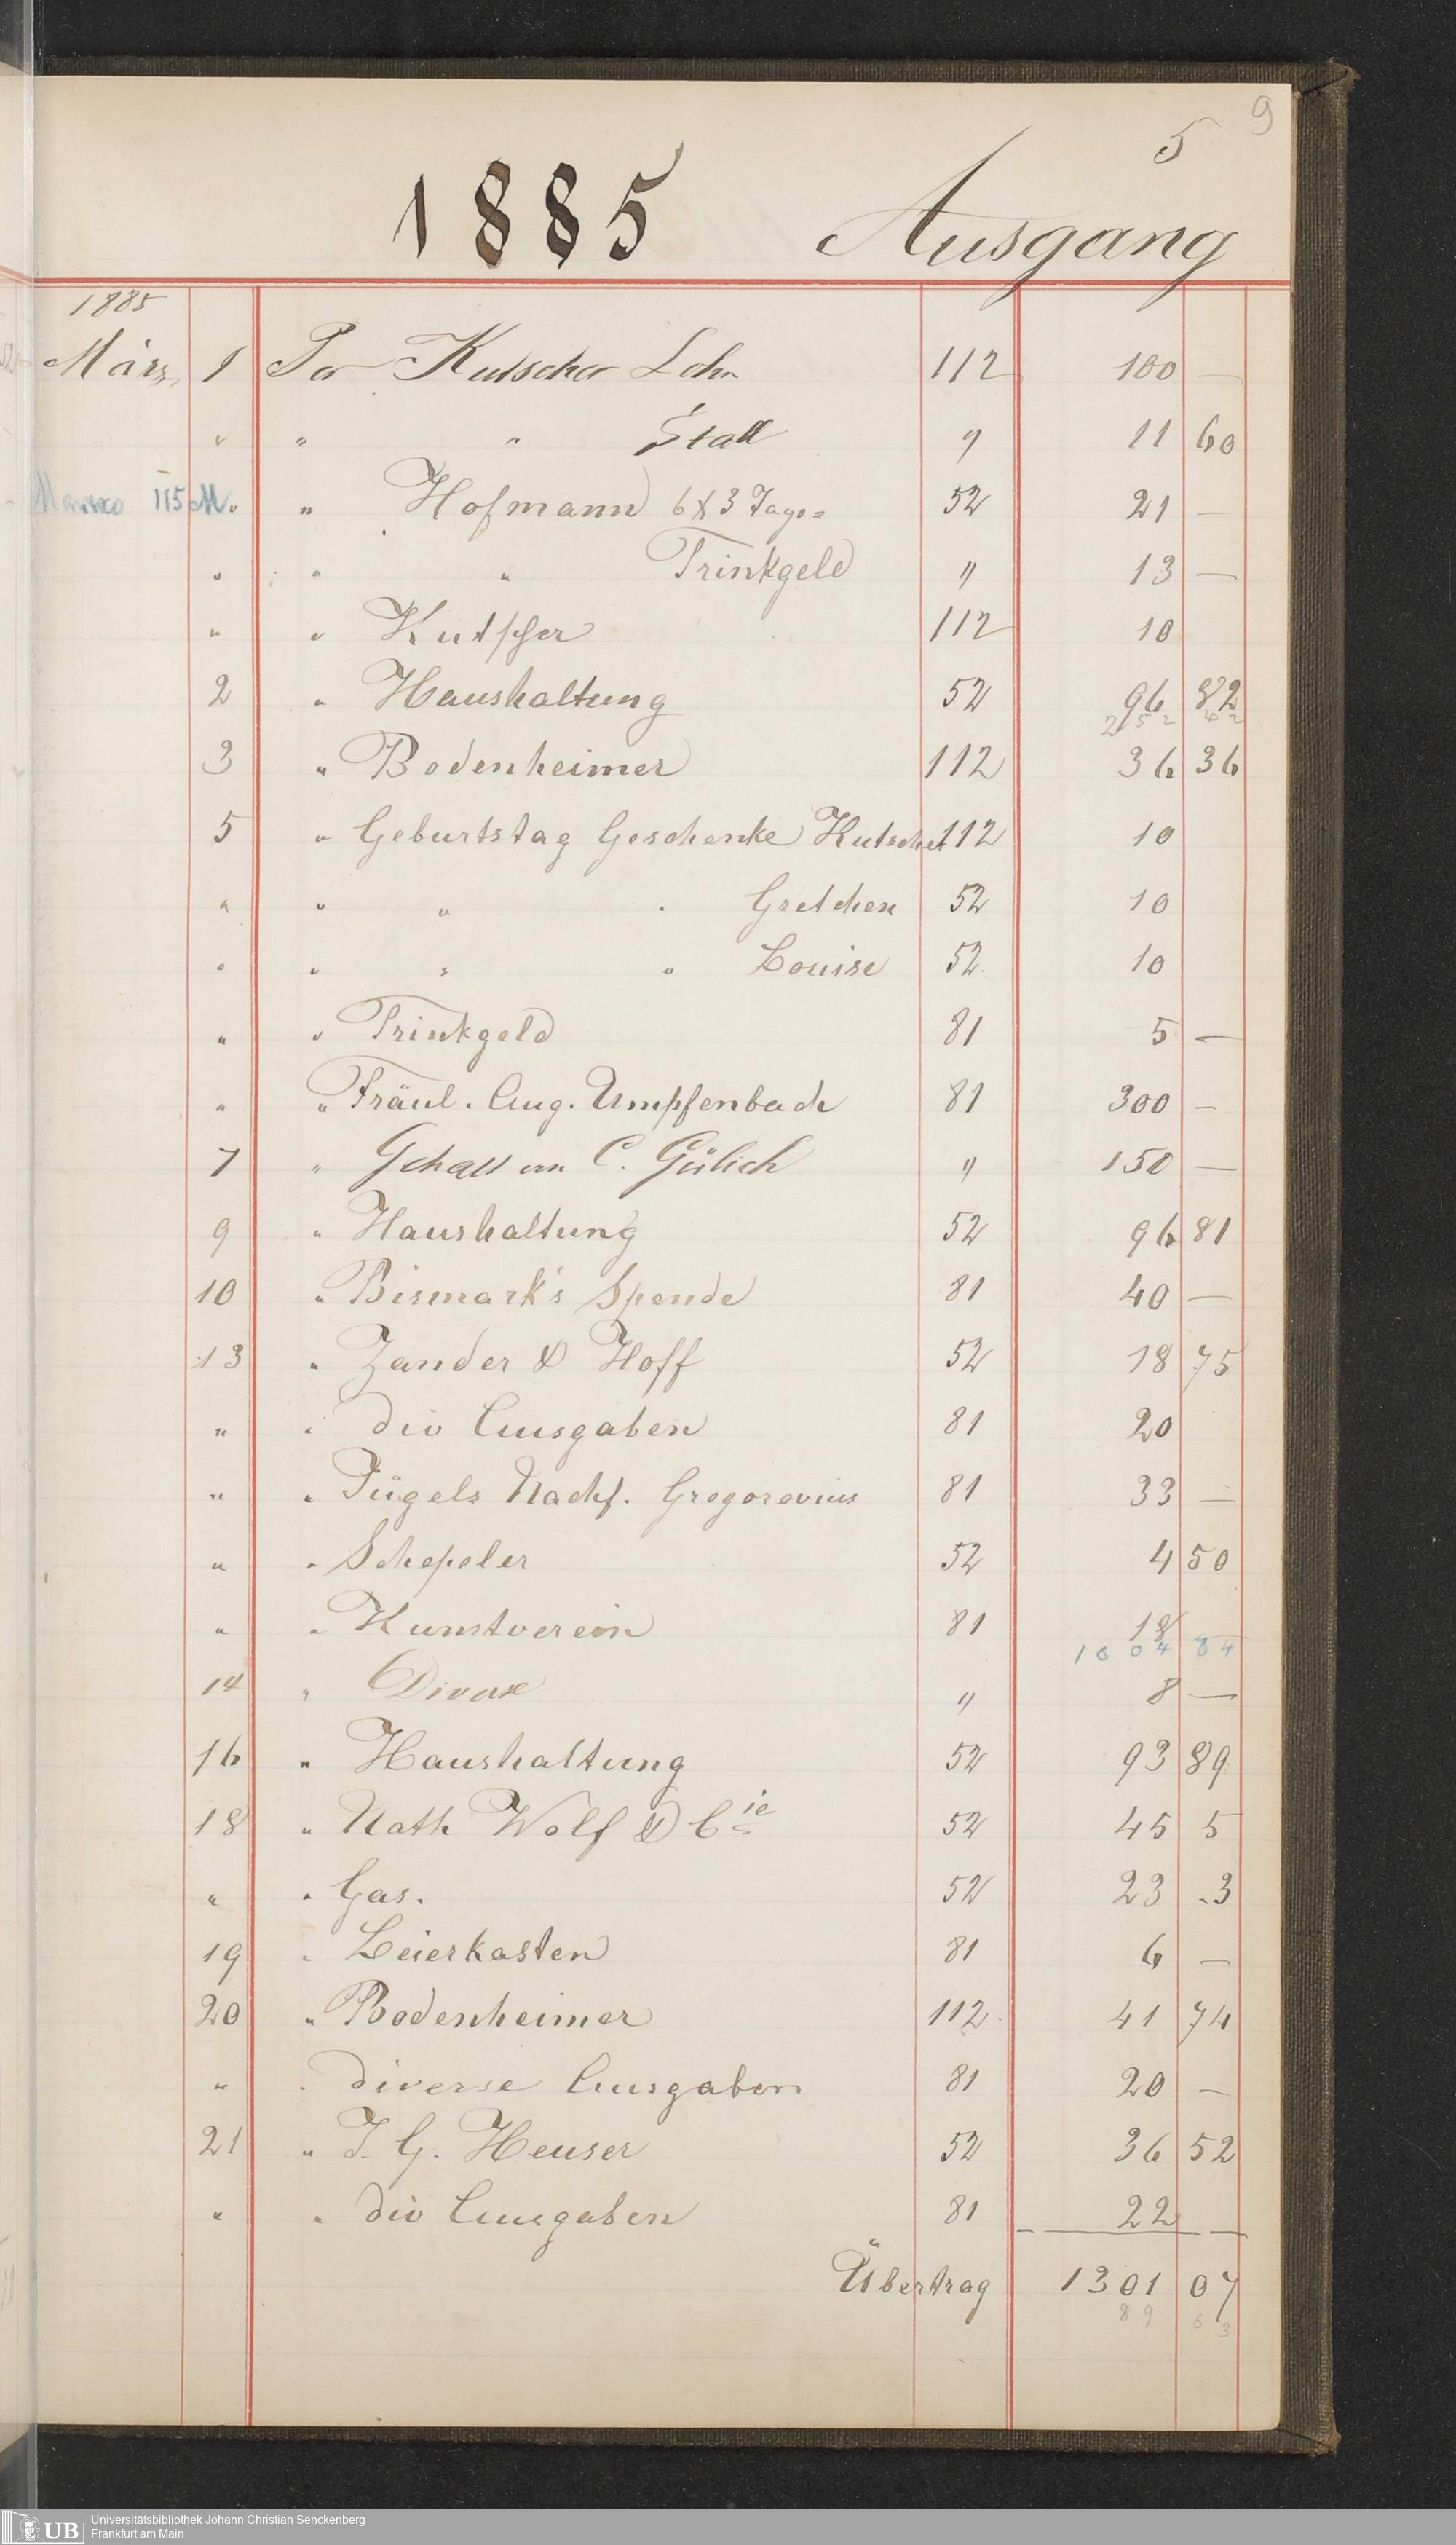 9
5
1885 Ausgang
1885
März 1 Per Kutscher Lohn 112 100 —
" " " Stall " 11 60
115 M. " " Hofmann 6 X 3 Tage = 52 21 —
" " " Trinkgeld " 13 —
" " Kutscher 112 10
2 " Haushaltung 52 96 82
252 42
3 " Bodenheimer 112 36 36
5 " Geburtstag Geschenke Kutscher 112 10
" " " " Gretchen 52 10
" " " " Louise 52 10
" " Trinkgeld 81 5 —
" " Fräul. Aug. Umpfenbach 81 300 —
7 " Gehalt an C. Gülich " 150 —
9 " Haushaltung 52 96 81
10 " Bismark's Spende 81 40 —
13 " Zander & Hoff 52 18 75
" " div Ausgaben 81 20
" " Jügels Nachf. Gregorovius 81 33 —
" " Schepeler 52 4 50
" " Kunstverein 81 18 —
1004 84
14 " Diverse " 8 —
16 " Haushaltung 52 93 89
18 " Nath Wolf & Cie 52 45 5
" " Gas. 52 23 .3
19 " Leierkasten 81 6 —
20 " Bodenheimer 112 41 74
" " diverse Ausgaben 81 20 —
21 " J. G. Heuser 52 36 52
" " div Ausgaben 81 22 —
Übertrag 1301 07
89 63
Universitätsbibliothek Johann Christian Senckenberg
UB Frankfurt am Main